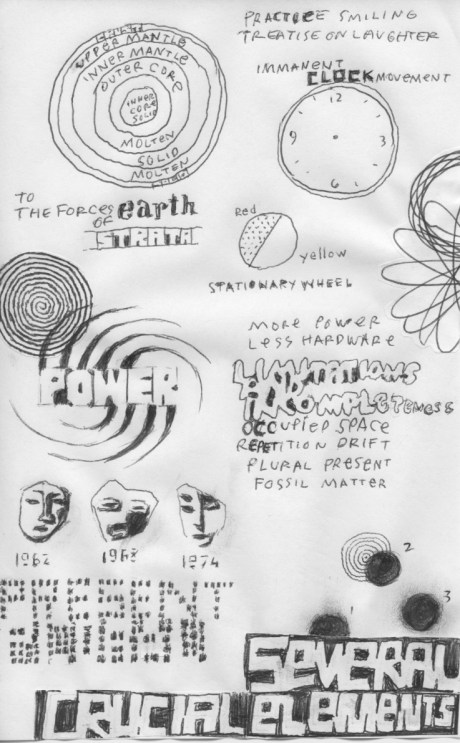 UPPER MANTLE
INNER MANTLE
OUTER CORE
INNER
CORE
SOLID
MOLTEN
SOLID
MOLTEN
TO
THE FORCES earth
OF
STRATA
PRACTICE SMILING
TREATISE ON LAUGHTER
IMMANENT
CLOCK MOVEMENT
12
9
3
6
Red
yellow
STATIONARY WHEEL
POWER
MORE POWER
LESS HARDWARE
LIMITATIONS
INCOMPLETENESS
OCCUPIED SPACE
REPETITION DRIFT
PLURAL PRESENT
FOSSIL MATTER
1962
1968
1974
2
1
3
SEVERAL
CRUCIAL ELEMENTS